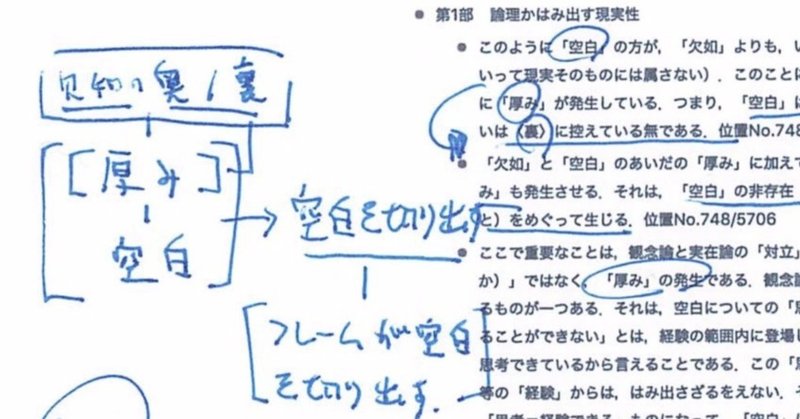 見知の奥/裏
[厚み]
空白
空白を切り出す
フレームが空白
を切り出す.
第1部 論理からはみ出す現実性
このように「空白」の方が，「欠如」よりも，い
いって現実そのものには属さない）．このことに
に「厚み」が発生している．つまり，「空白」に
いは〈裏〉に控えている無である．位置No.748
「欠如」と「空白」のあいだの「厚み」に加えて
み」も発生させる．それは，「空白」の非存在
と）をめぐって生じる．位置No.748/5706
ここで重要なことは，観念論と実在論の「対立」
か）」ではなく，「厚み」の発生である．観念論
るものが一つある．それは，空白についての「思
ることができない」とは，経験の範囲内に登場し
思考できているから言えることである．この「思
等の「経験」からは，はみ出さざるをえない．そ